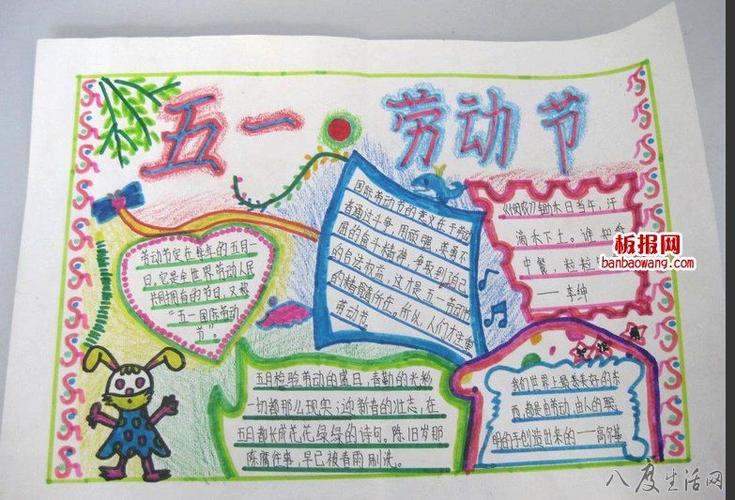 五一 劳动节
劳动节定在每年的五月一
日,它是全世界劳动人民
共同拥有的节日,又称
“五一国际劳动
节。
国际劳动节的意义在于劳动
者通过斗争,用顽强、英勇不
屈的奋斗精神,争取到自己
的合法权益,这 是五一劳动
的精髓所在。所以,人们才注重
劳动节。
《悯农》锄禾日当午,汗
滴禾下土。谁知盘
中餐,粒粒
——李绅
板报网
banbaowang.com
五月检验劳动的盛日,春勤的
一切都那么现实;迎新春的壮志,在
五月都长成花花绿绿的诗句。陈旧岁那
陈腐往事,早已被春雨刷洗。
我们世界上最美好的东
西,都是由劳动、由人的聪
明的手创造出来的——高尔基
八度生活网